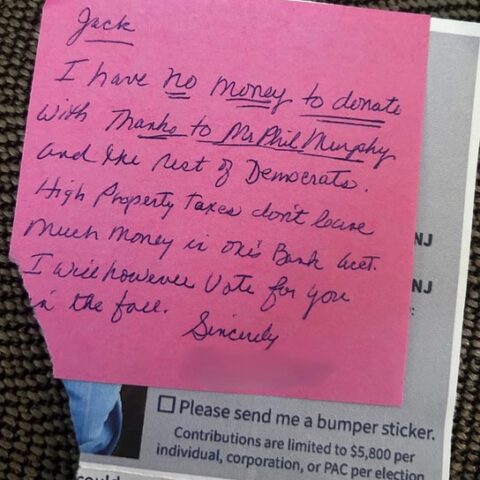 Jack
I have no money to donate
with Thanks to Mr Phil Murphy
and the rest of Democrats.
High Property taxes don't leave
much money in one's Bank acct.
I will however Vote for you
in the fall.
Sincerely
NJ
NJ
:
Please send me a bumper sticker.
Contributions are limited to $5,800 per
individual, corporation, or PAC per election
could